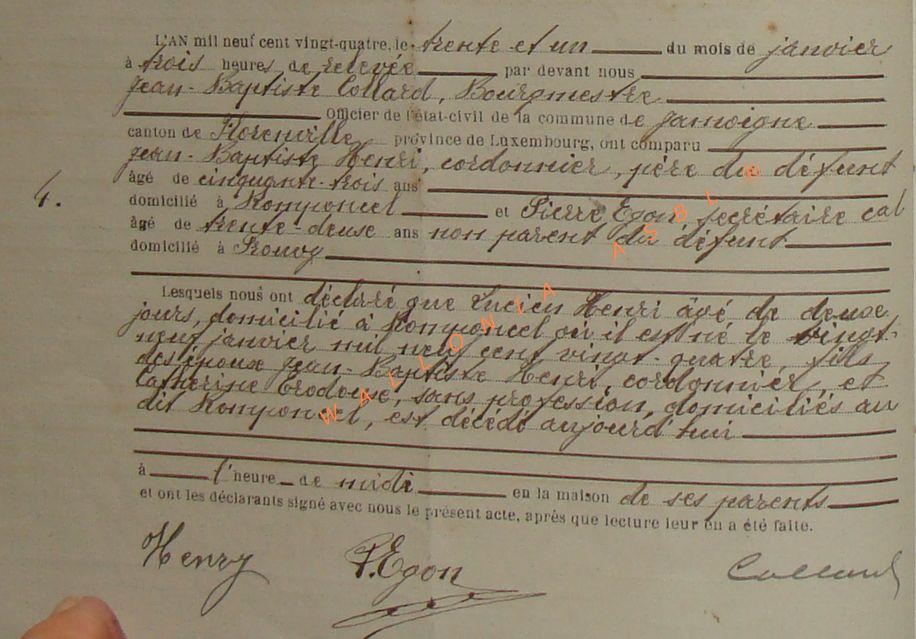 L'AN mil neuf cent vingt-quatre, le trente et un du mois de janvier
à trois heures de relevée par devant nous
Jean-Baptiste Collard, Bourgmestre
Officier de l'état-civil de la commune de Jamoigne
canton de Florenville province de Luxembourg, ont comparu
Jean-Baptiste Henri, cordonnier, père du défunt
âgé de cinquante-trois ans
4.
domicilié à Romponcel et Pierre Egon secrétaire cal
âgé de trente-deuse ans non parent du défunt
domicilié à Prouvy
Lesquels nous ont déclaré que Lucien Henri âgé de deuse
jours, domicilié à Romponcel où il est né le vingt-
neuf janvier mil neuf cent vingt-quatre, fils
des époux Jean-Baptiste Henri, cordonnier, et
Catherine sans profession, domiciliés au
dit Romponcel, est décédé aujourd'hui
à l'heure de midi en la maison de ses parents
et ont les déclarants signé avec nous le présent acte, après que lecture leur en a été faite.
Henry P.Egon Collard
WALLONIA ASBL ©